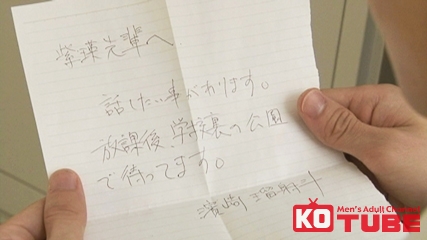 紫瑛先輩へ
話したい事があります。
放課後、学校裏の公園
で待ってます。
濱崎
KO Men's Adult Channel
TUBE